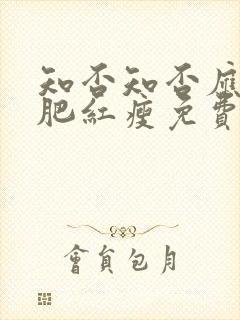 知否知否應
肥紅瘦免費
會員包月